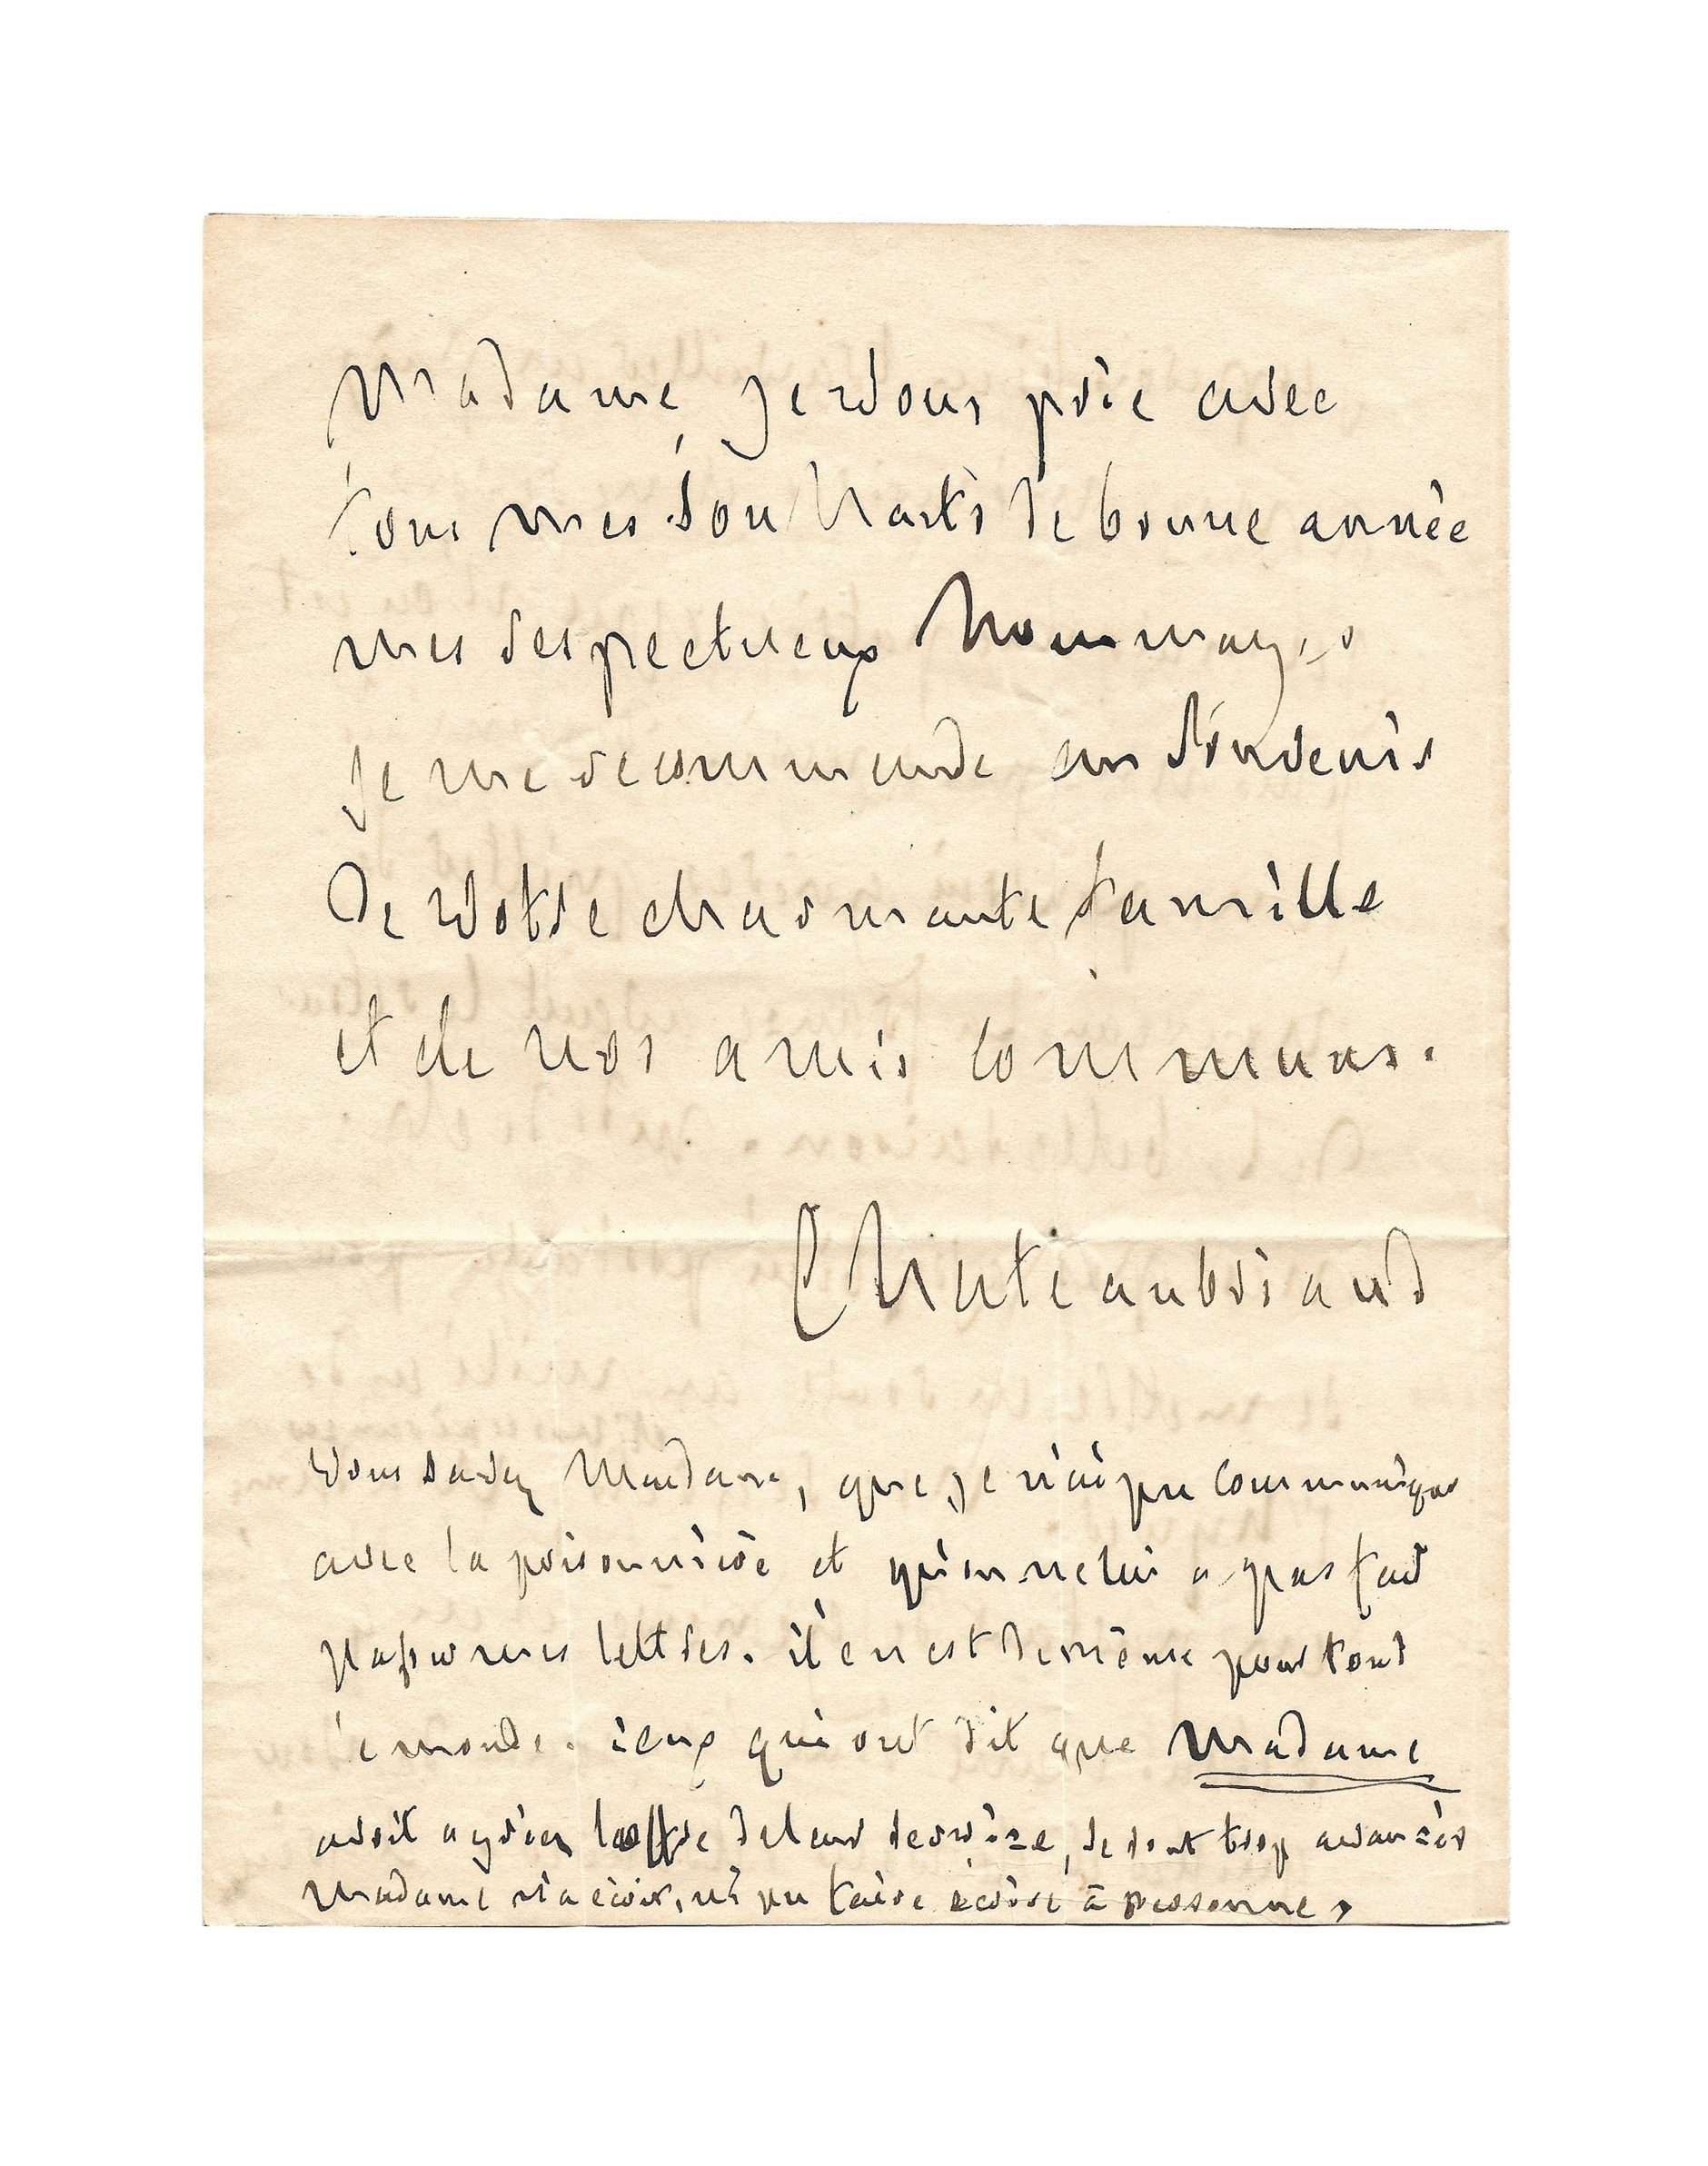 Madame, je vous prie avec
tous mes souhaits de bonne année
mes respectueux hommages
je me recommande au souvenir
de votre charmante famille
et de nos amis communs.
Chateaubriand
Vous savez Madame, que je n'ai pu communiquer
avec la prisonnière et qu'on ne lui a pas fait
passer mes lettres. il en est de même pour tout
le monde. ceux qui ont dit que Madame
avoit agréé l'offre de leur service, se sont trop avancés
Madame n'a écrit, ni pu faire écrire à personne,